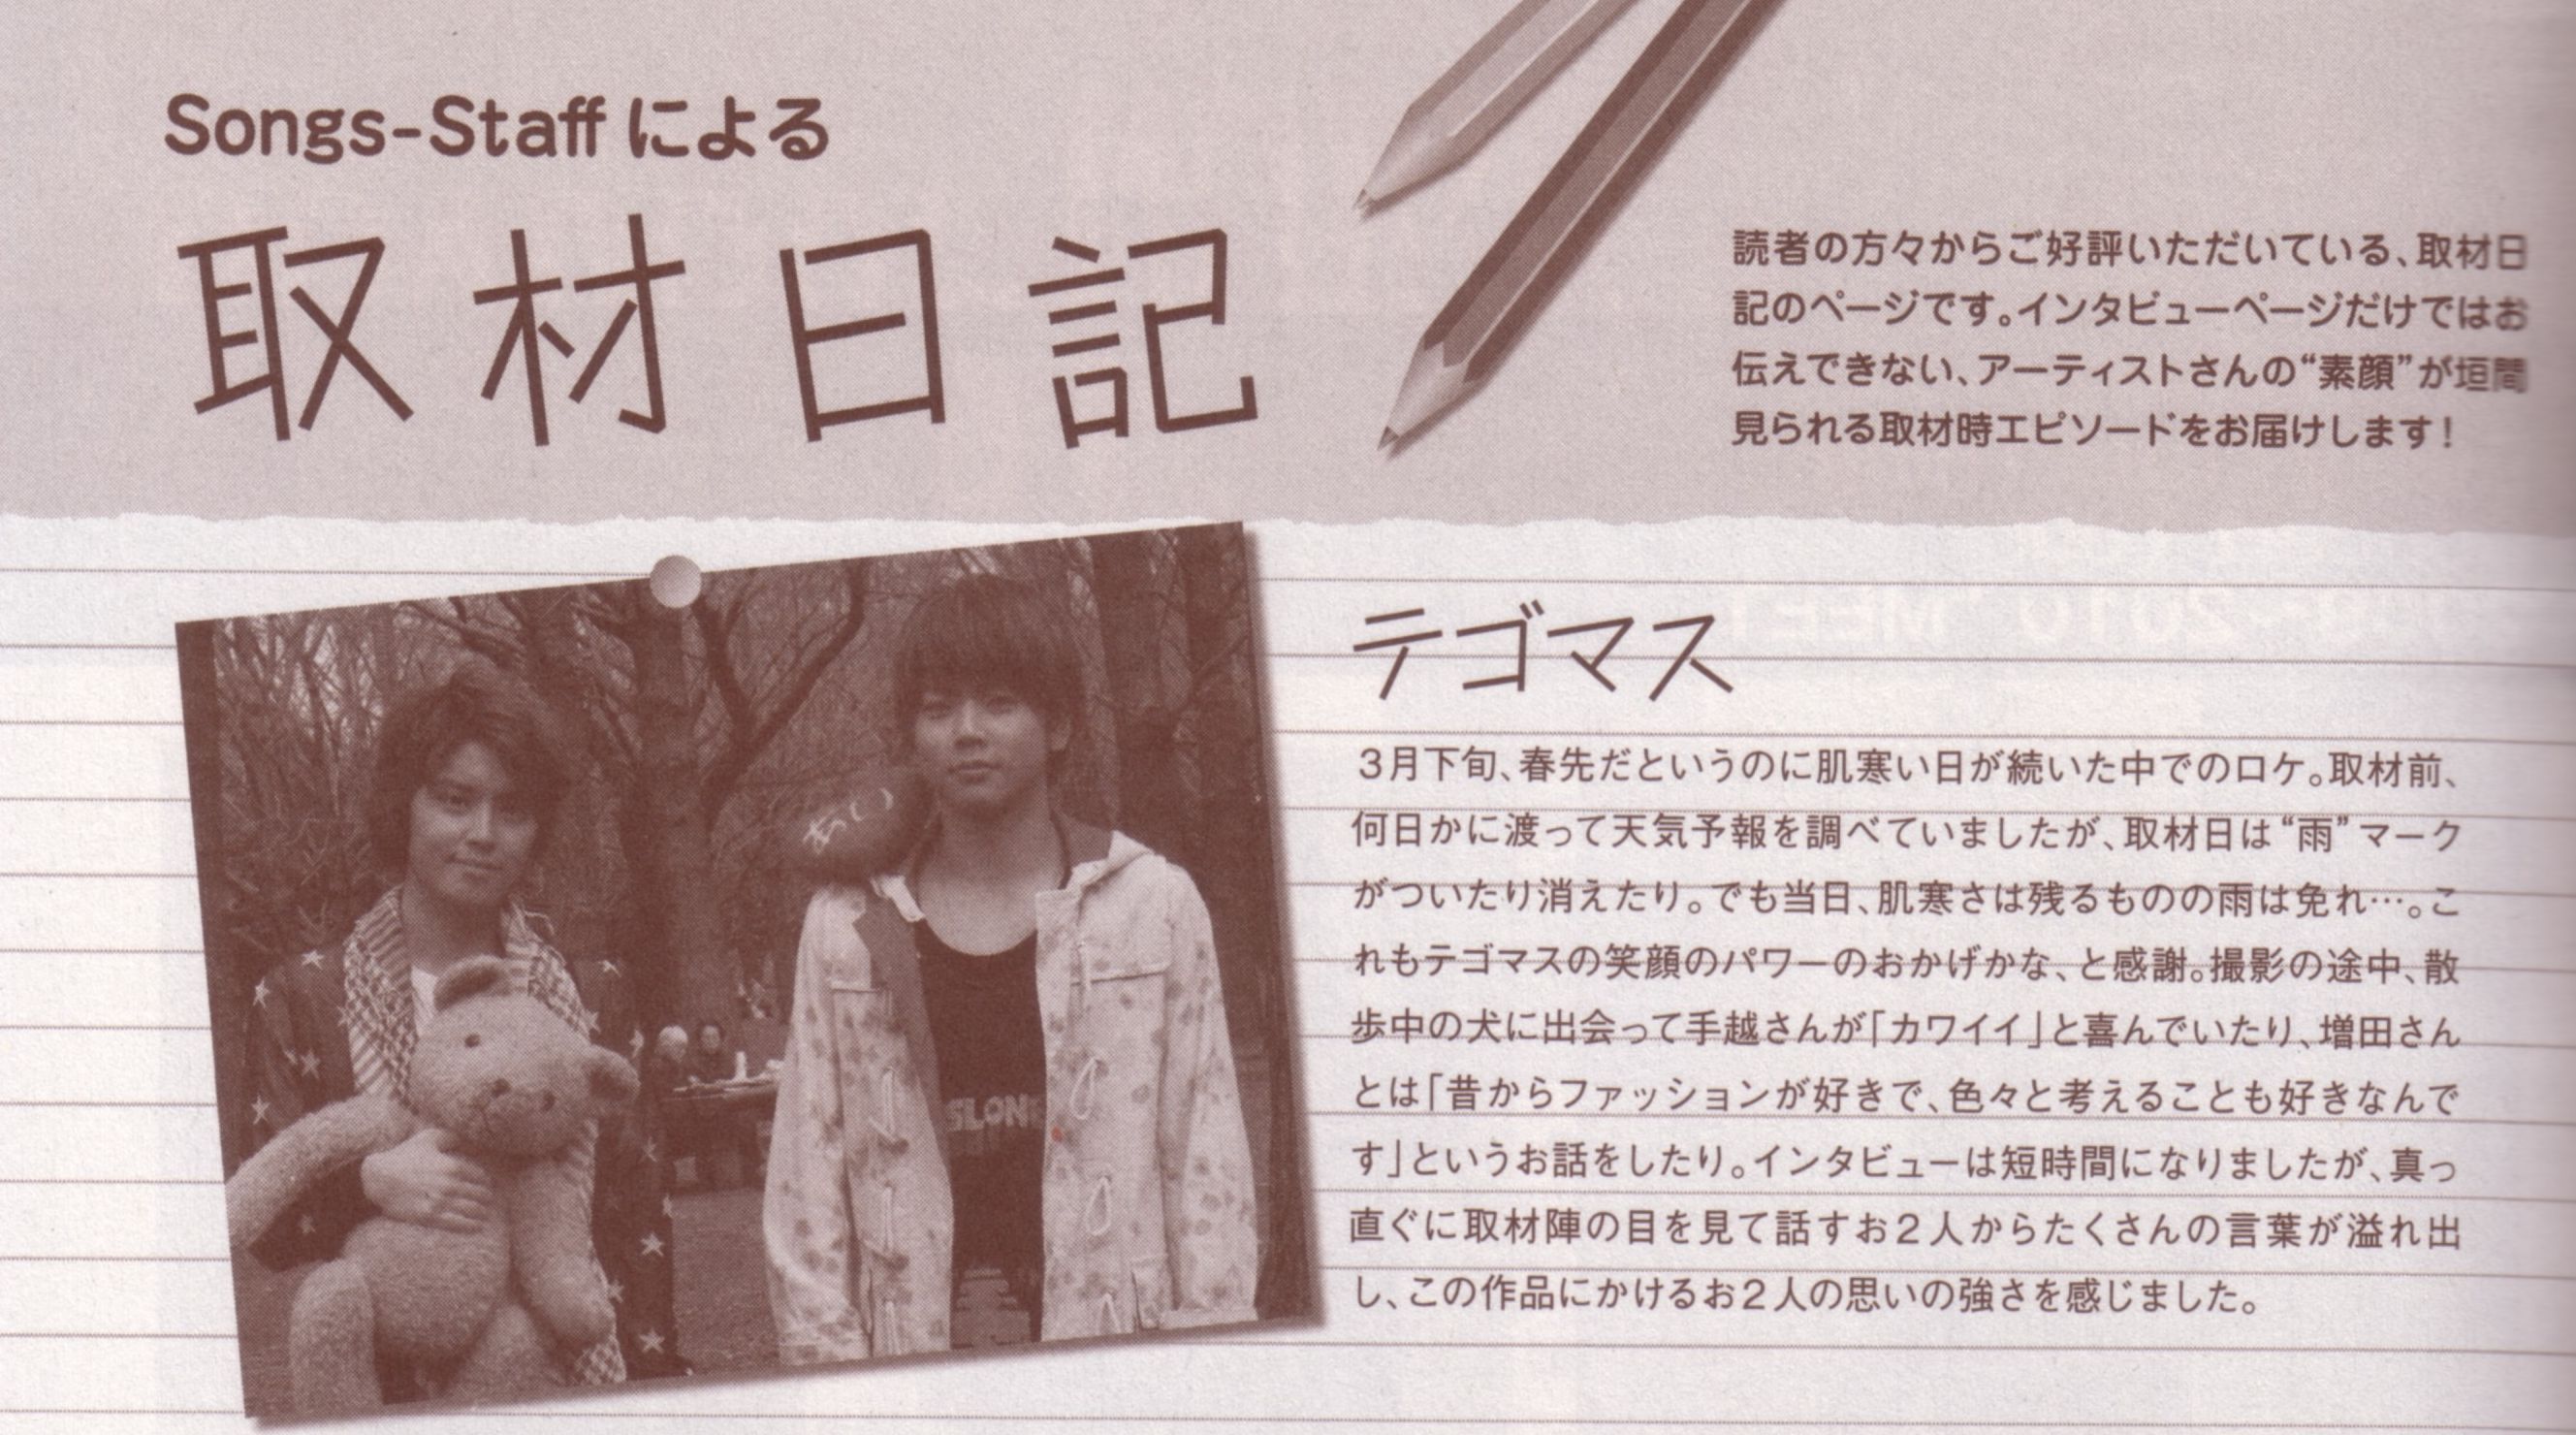 Songs-Staff による
取材日記
読者の方々からご好評いただいている、取材日
記のページです。インタビューページだけではお
伝えできない、アーティストさんの“素顔”が垣間
見られる取材時エピソードをお届けします！
テゴマス
3月下旬、春先だというのに肌寒い日が続いた中でのロケ。取材前、
何日かに渡って天気予報を調べていましたが、取材日は“雨”マーク
がついたり消えたり。でも当日、肌寒さは残るものの雨は免れ…。こ
れもテゴマスの笑顔のパワーのおかげかな、と感謝。撮影の途中、散
歩中の犬に出会って手越さんが「カワイイ」と喜んでいたり、増田さん
とは「昔からファッションが好きで、色々と考えることも好きなんで
す」というお話をしたり。インタビューは短時間になりましたが、真っ
直ぐに取材陣の目を見て話すお2人からたくさんの言葉が溢れ出
し、この作品にかけるお2人の思いの強さを感じました。
あい